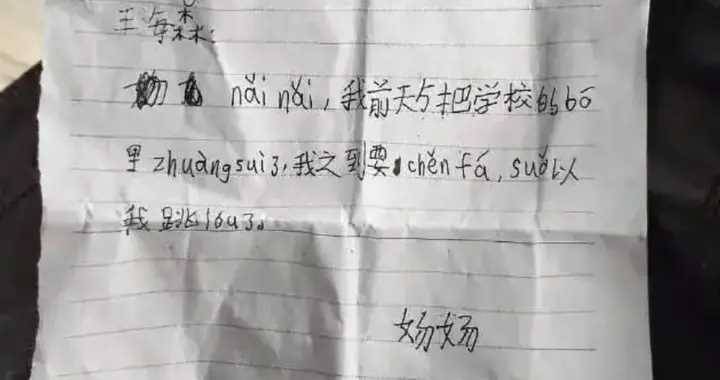 王海森:
nǎi nǎi，我前天与把学校的bō
里zhuàngsuì3，我之到要chěnfá，suǒ以
我跳lóu3。
妈妈